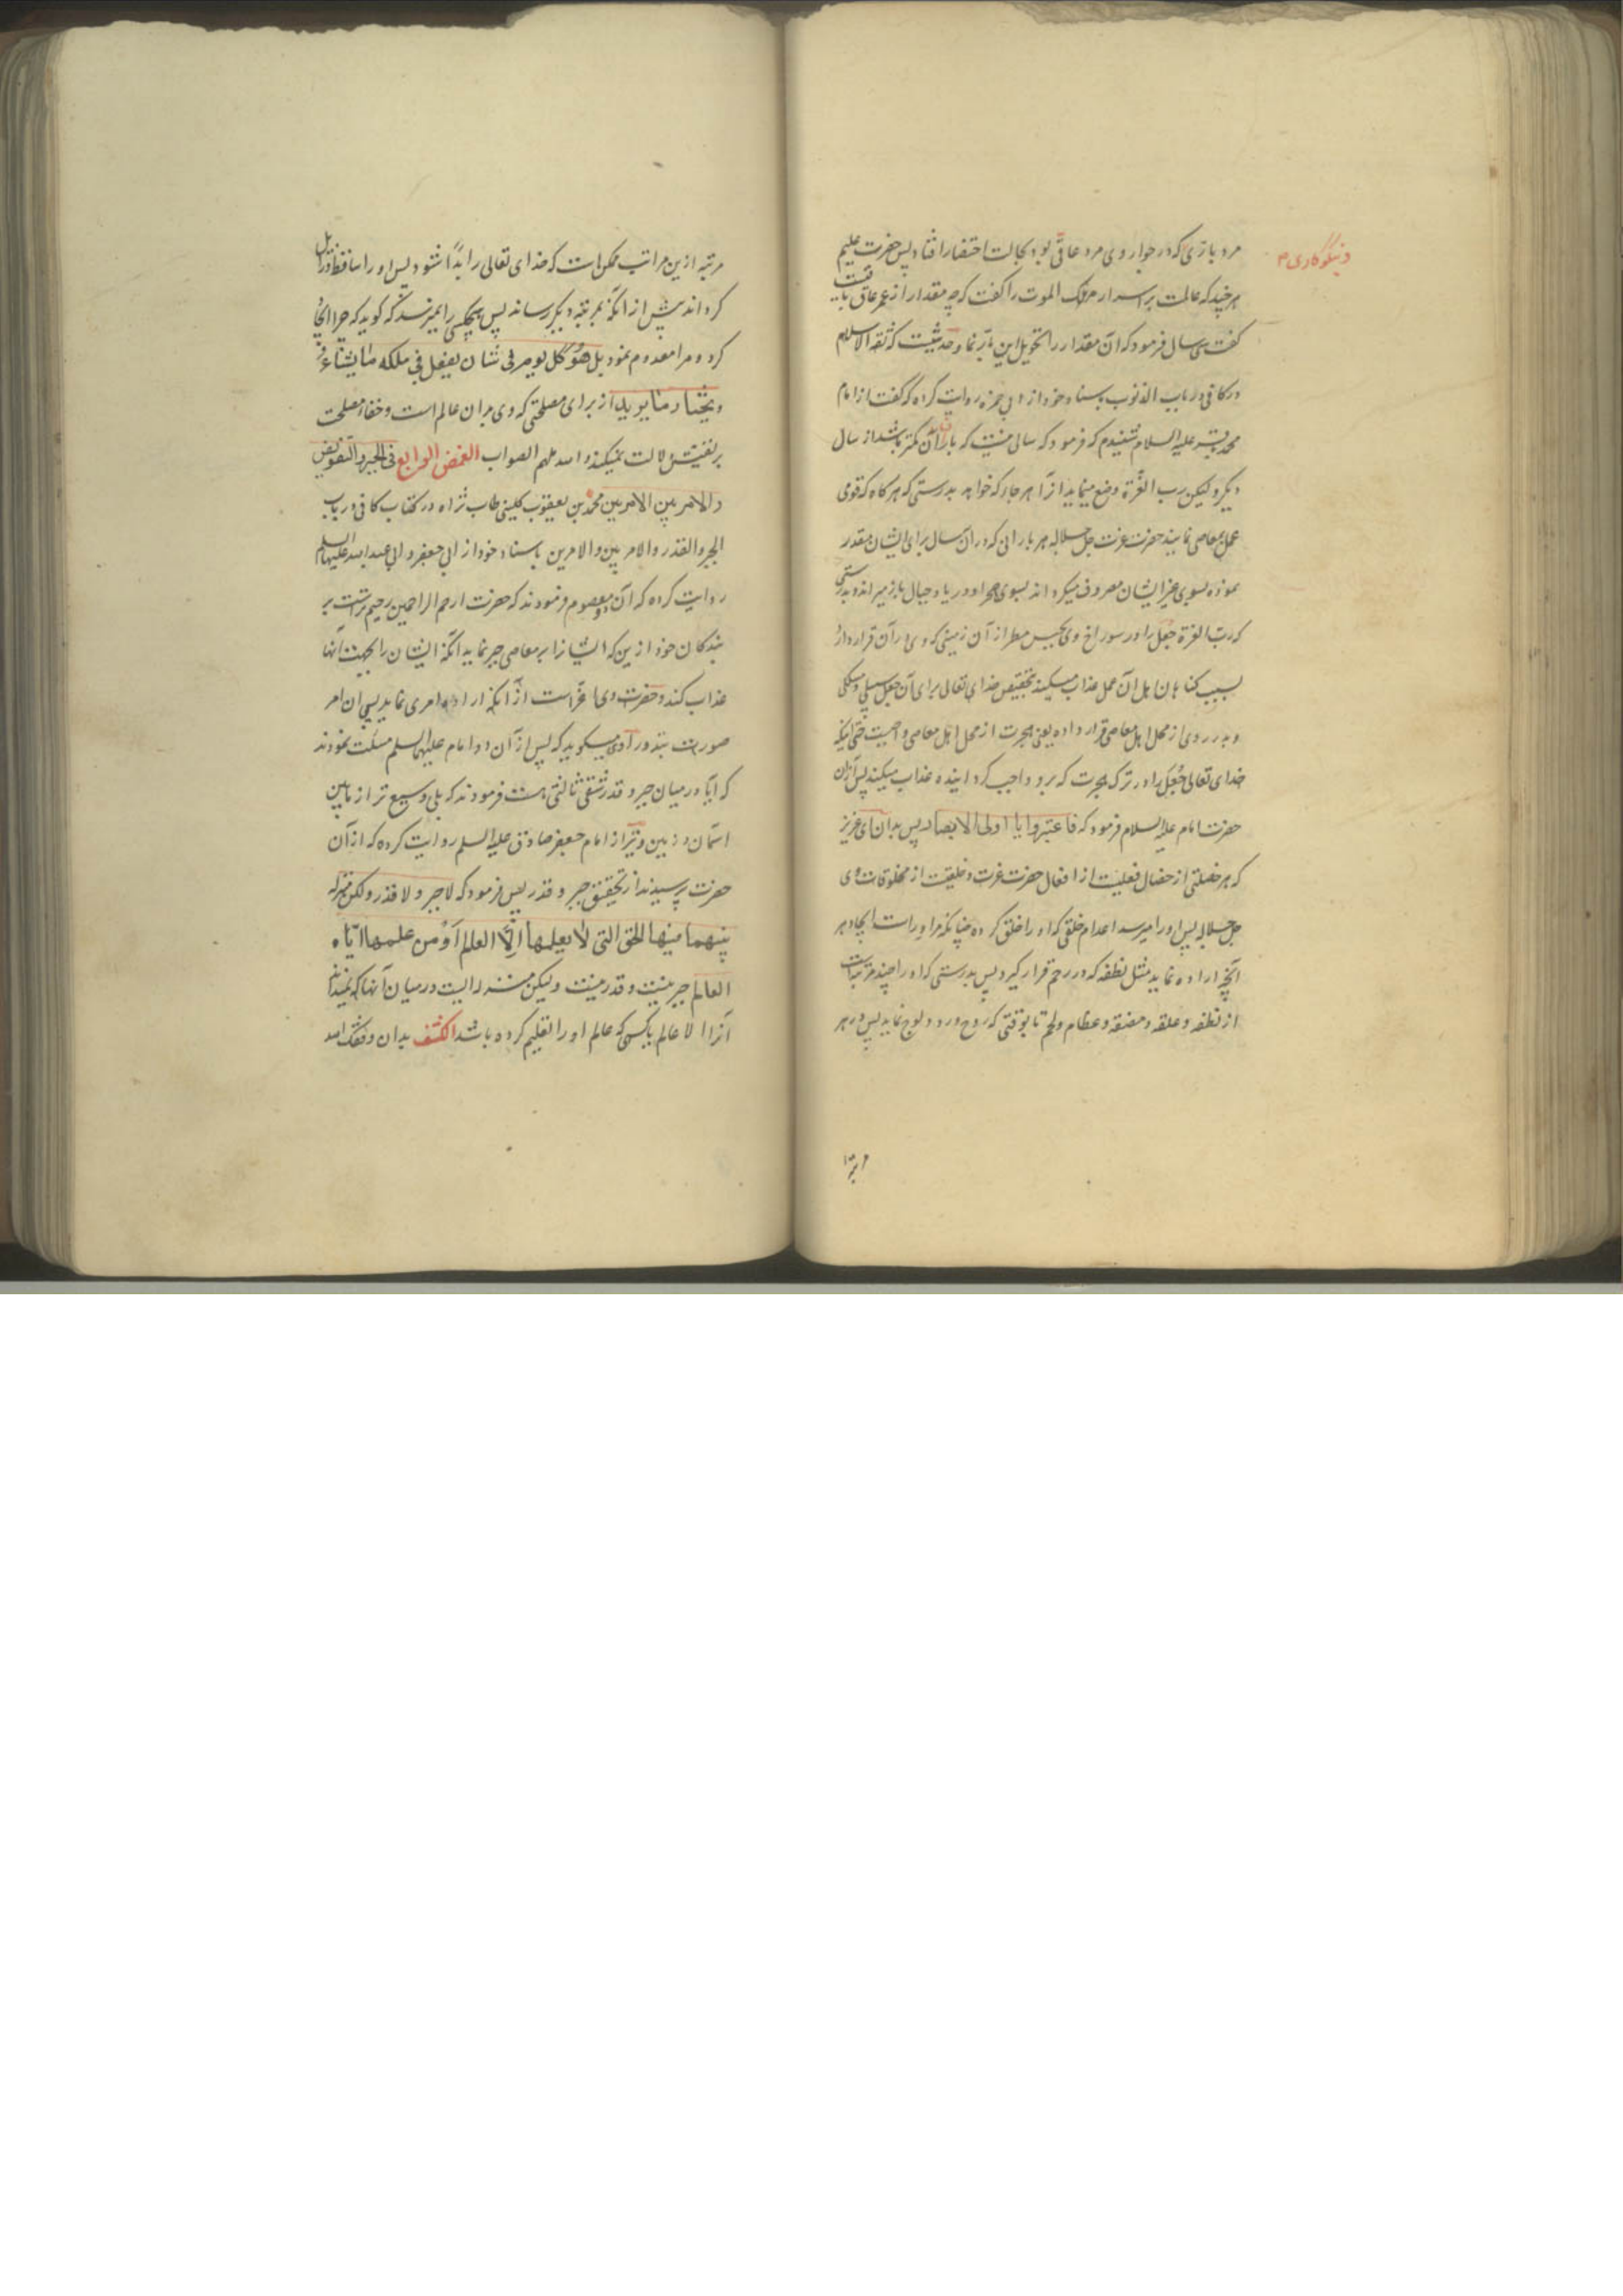 مرد بازی که در جوار وی مرد عاقی بود بحالت احتضار افتاد پس حضرت علیم
هرچند که عالمست بر اسرار ملک الموت را کفت که چه مقدار از عمر عاق باقیست
کفت سی سال فرمود که آن مقدار را تحویل این بارّ نما و حدیثیست که ثقة الاسلام
در کافی در باب الذنوب باسناد خود از ابی حمزه روایت کرده که گفت از امام
محمد باقر علیه السلام شنیدم که فرمود که سالی نیست که باران آن کمتر باشد از سال
دیگر و لیکن رب العزّة وضع مینماید آنرا هر جا که خواهد بدرستی که هر کاه که قومی
عمل بمعاصی نمایند حضرت عزت جل جلاله هر بارانی که در آن سال برای ایشان مقدر
نموده بسوی غیر ایشان مصروف میکرداند بسوی صحرا و دریا و جبال باز میراند و بدرستی
که ربّ العزة جعل را در سوراخ وی بحبس مطر از آن زمینی که وی در آن قرار دارد
بسبب کناهان اهل آن محل عذاب میکند بتحقیق خدای تعالی برای آن جعل سبیلی و مسلکی
و بدر روی از محل اهل معاصی قرار داده یعنی هجرت از محل اهل معاصی واجبست حتی اینکه
خدای تعالی جُعَل را در ترک هجرت که بر او واجب کردانیده عذاب میکند پس از آن
حضرت امام علیه السلام فرمود که فاعتبروا یا اولی الابصار پس بدان ای عزیز
که هر خصلتی از خصال فعلیست از افعال حضرت عزت و خلقیست از مخلوقات وی
جل جلاله پس او را میرسد اعدام خلقی که او را خلق کرده چنانکه مر او راست ایجاد هر
آنچه اراده نماید مثل نطفه که در رحم قرار کیرد پس بدرستی که او را چند مرتبه است
از نطفه و علقه و مضغه و عظام و لحم تا بوقتی که روح در او ولوج نماید پس در هر
مرتبه
و نیکوکاری م
مرتبه ازین مراتب ممکن است که خدای تعالی را بدا شود پس او را ساقط و زایل
کرداند پیش از آنکه بمرتبه دیکر رساند پس هیچکس را نمیرسد که کوید که چرا ایجاد
کرد و مرا معدوم نمود بل هُوَ کل یوم فی شان یفعل فی ملکه ما یشاء و
ویختار ما یرید از برای مصلحتی که وی بر آن عالم است و خفاء مصلحت
بر نفیش دلالت نمیکند و الله ملهم الصواب الغمض الرابع فی الجبر و التفویض
و الامر بین الامرین محمد بن یعقوب کلینی طاب ثراه در کتاب کافی در باب
الجبر و القدر و الامر بین الامرین باسناد خود از ابی جعفر و ابی عبد الله علیهما السلم
روایت کرده که آن دو معصوم فرمودند که حضرت ارحم الراحمین رحیم تر است بر
بندکان خود ازین که ایشانرا بر معاصی جبر نماید آنکه ایشان را بجهت آنها
عذاب کند و حضرت وی اعزّ است از آنکه اراده امری نماید پس آن امر
صورت نبندد راوی میکوید که پس از آن دو امام علیهما السلم مسئلت نمودند
که آیا در میان جبر و قدر شقی ثالثی هست فرمودند که بلی وسیع تر از مابین
اسمان و زمین و نیز از امام جعفر صادق علیه السلم روایت کرده که از آن
حضرت پرسیدند از تحقیق جبر و قدر پس فرمود که لا جبر و لا قدر و لکن منزلة
بینهما فیها الحق التی لا یعلمها اِلّا العالم اَوْ من علمها ایّاه
العالم جبر نیست و قدر نیست و لیکن منزله ایست در میان آنها که نمیداند
آنرا الا عالم یا کسی که عالم او را تعلیم کرده باشد الکشف بدان وفقک الله